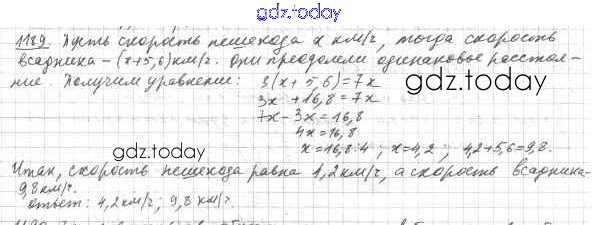 gdz.today
1189. Пусть скорость пешехода x км/ч, тогда скорость
всадника – (x+5,6) км/ч. Они преодолели одинаковое расстоя-
ние. Получим уравнение: 3(x+5,6)=7x
gdz.today
3x +16,8=7x
7x-3x=16,8
4x=16,8
gdz.today
x=16,8:4; x=4,2; 4,2+5,6=9,8.
Итак, скорость пешехода равна 1,2км/ч, а скорость всадника-
9,8км/ч.
Ответ: 4,2км/ч; 9,8км/ч.
gdz.today